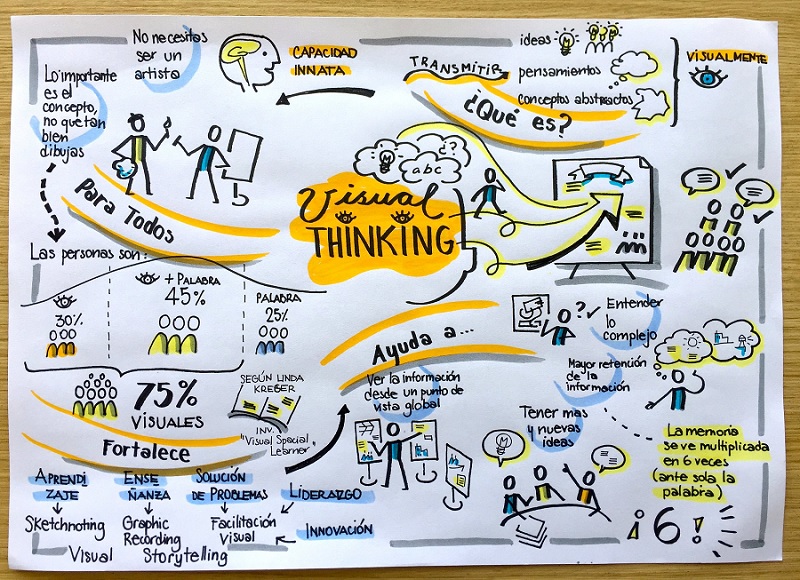 Visual
THINKING
¿Qué es?
TRANSMITIR
ideas
pensamientos
conceptos abstractos
VISUALMENTE
abc
?
CAPACIDAD
INNATA
No necesitas
ser un
artista
Lo importante
es el
concepto,
no que tan
bien
dibujas
Para Todos
Las personas son:
30%
+ PALABRA
45%
PALABRA
25%
75%
VISUALES
SEGÚN LINDA
KREGER
INV.
"Visual Spacial
Learner"
Fortalece
APRENDI
ZAJE
Sketchnoting
ENSE
ÑANZA
Graphic
Recording
SOLUCIÓN
DE PROBLEMAS
Facilitación
Visual
LIDERAZGO
INNOVACIÓN
Visual Storytelling
Ayuda a...
Ver la información
desde un punto de
vista global
?
Entender
lo
complejo
Mayor retención
de la
información
Tener mas
y nuevas
ideas
La memoria
se ve multiplicada
en 6 veces
(ante sola la
palabra)
¡6!